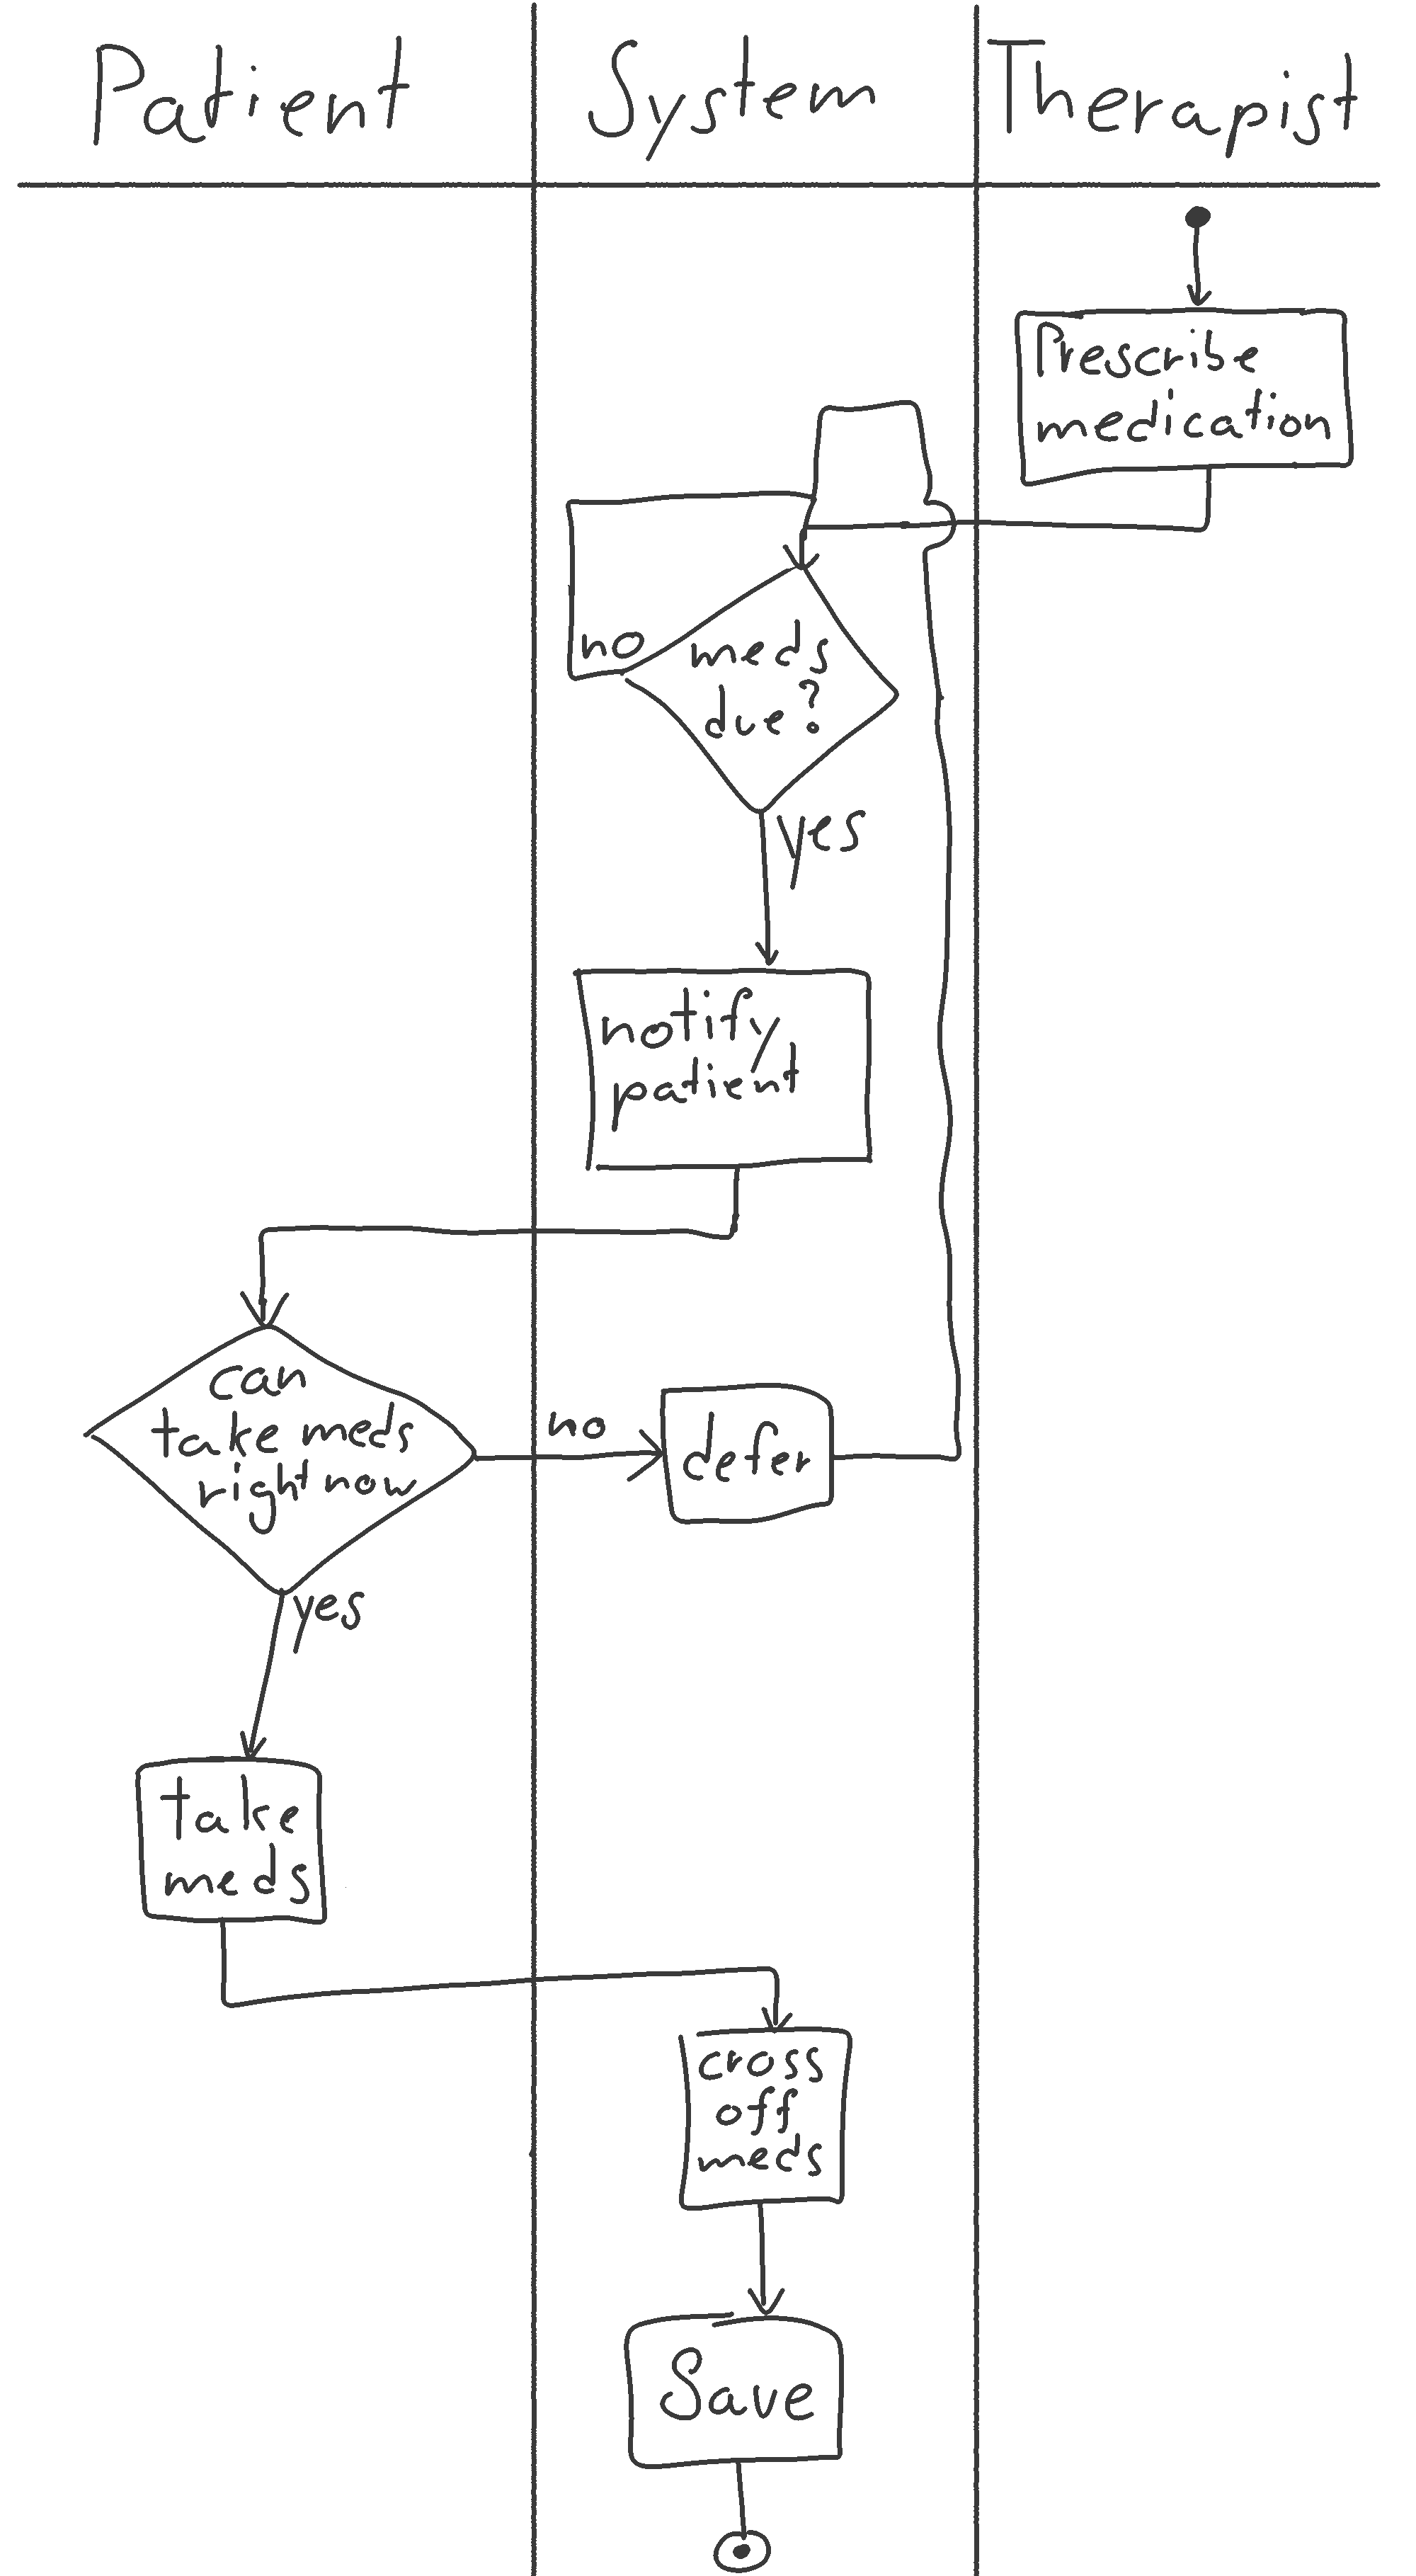 Patient
System
Therapist
Prescribe
medication
no
meds
due?
yes
notify
patient
can
take meds
right now
no
defer
yes
take
meds
cross
off
meds
Save